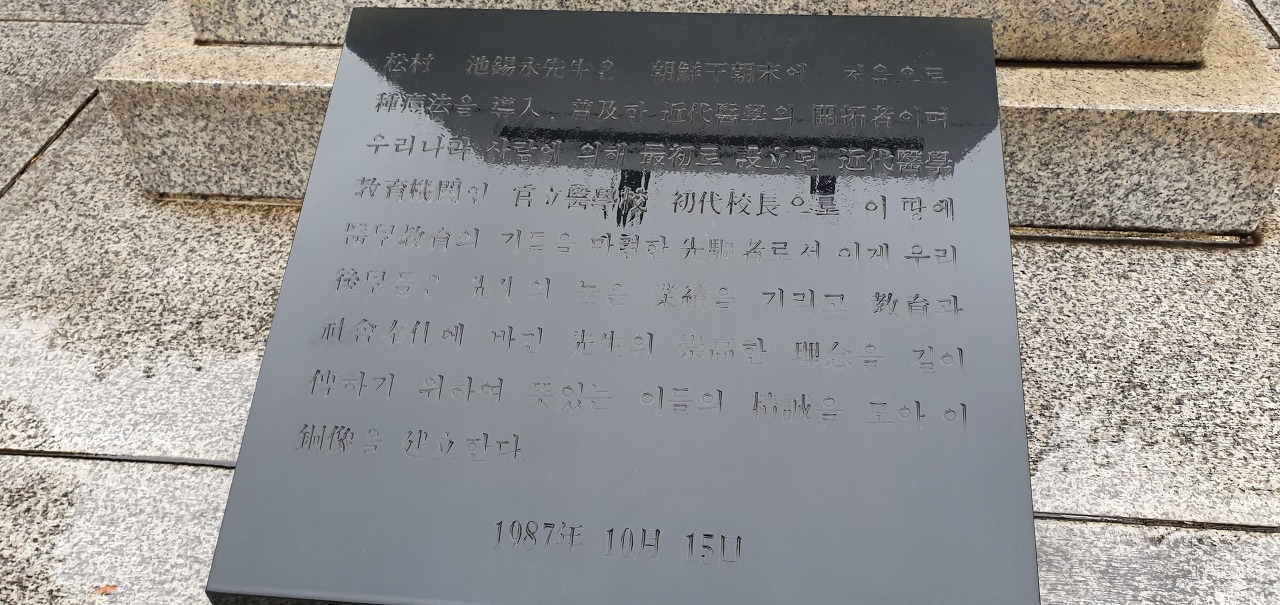 松村 池錫永先生은 朝鮮王朝末에 처음으로
種痘法을 導入, 普及한 近代醫學의 開拓者이며
우리나라 사람에 의해 最初로 設立된 近代醫學
敎育機關인 官立醫學校 初代校長으로 이 땅에
醫學敎育의 기틀을 마련한 先驅者로서 이에 우리
後學들은 先生의 높은 業績을 기리고 敎育과
社會奉仕에 바친 先生의 崇高한 理念을 길이
傳하기 위하여 뜻있는 이들의 精誠을 모아 이
銅像을 建立한다.
1987年 10月 15日